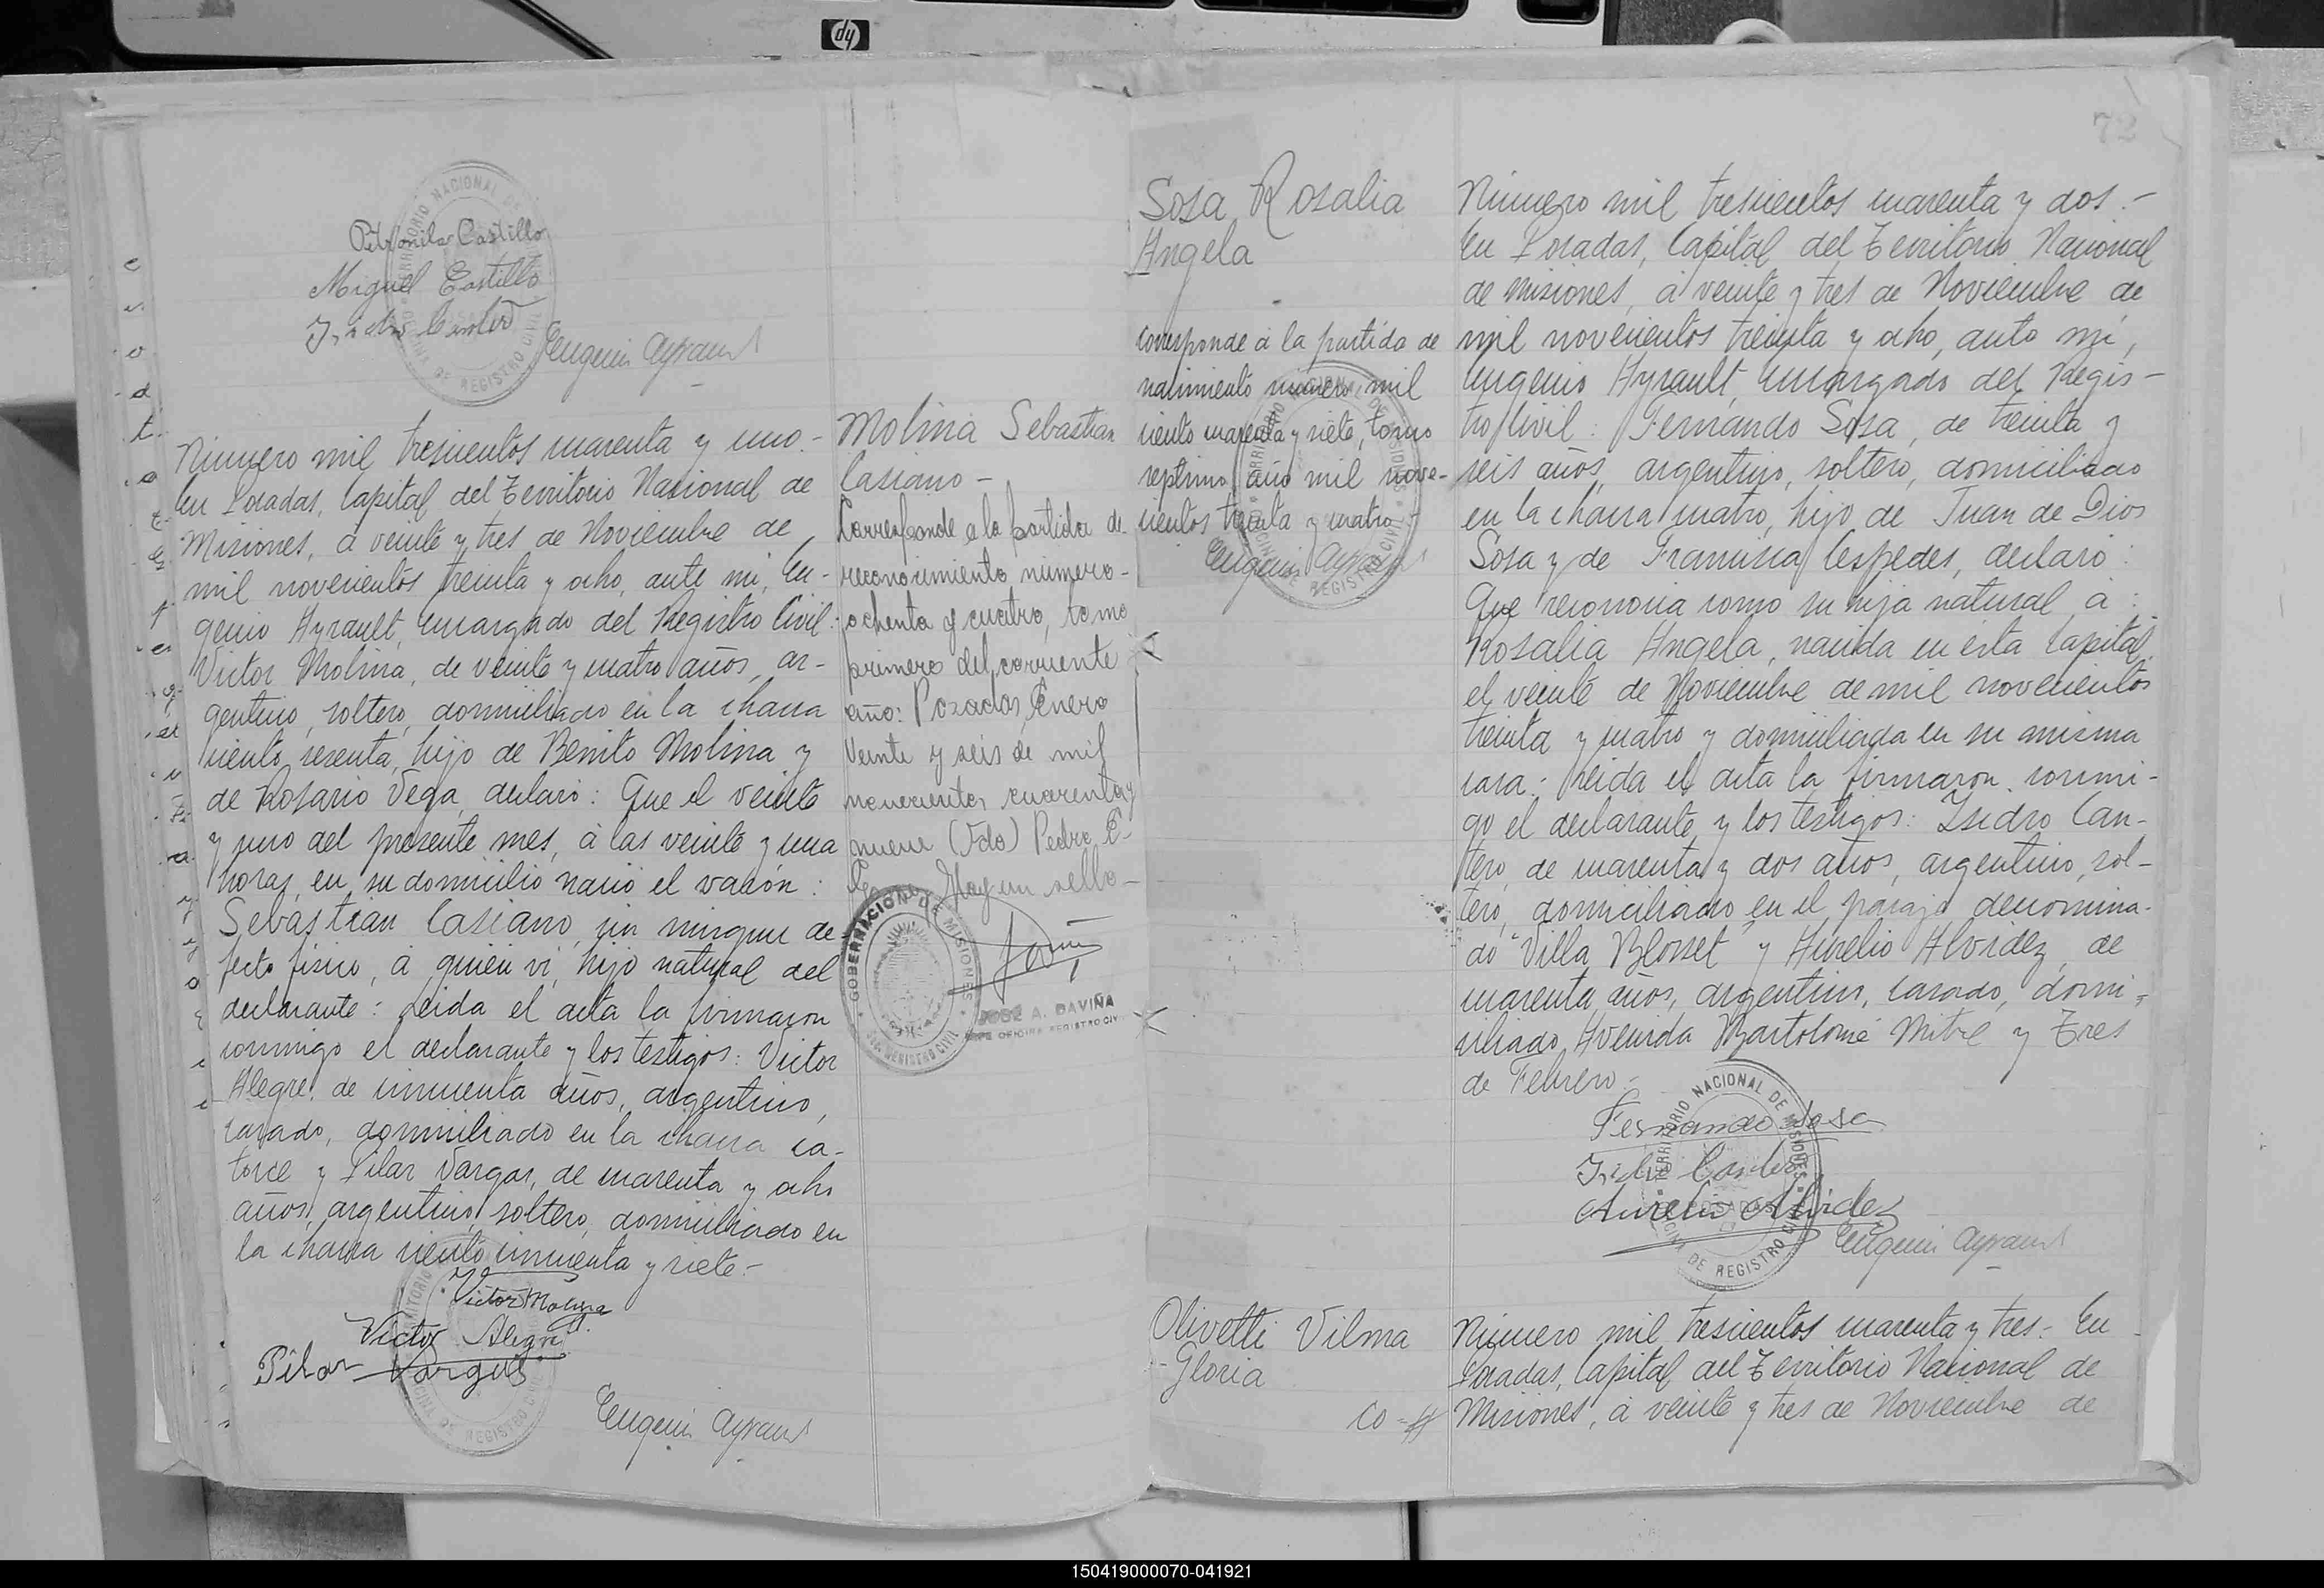 hp
72
Petronila Castillo
Miguel Castillo
Isidro Cantero
Eugenio Ayrault
Número mil trescientos cuarenta y uno.-
En Posadas, Capital del Territorio Nacional de
Misiones, á veinte y tres de Noviembre de
mil novecientos treinta y ocho, ante mí, Eu-
genio Ayrault, encargado del Registro Civil:
Victor Molina, de veinte y cuatro años, ar-
gentino, soltero, domiciliado en la chacra
ciento sesenta, hijo de Benito Molina y
de Rosario Vega, declaró: Que el veinte
y uno del presente mes, á las veinte y una
horas, en su domicilio nació el varón:
Sebastián Casiano, sin ningun de-
fecto físico, á quien ví, hijo natural del
declarante: Leida el acta la firmaron
conmigo el declarante y los testigos: Victor
Alegre, de cincuenta años, argentino,
casado, domiciliado en la chacra ca-
torce y Pilar Vargas, de cuarenta y ocho
años, argentino, soltero, domiciliado en
la chacra ciento cincuenta y siete.-
Victor Molina
Victor Alegre
Pilar Vargas
Eugenio Ayrault
Molina Sebastian
Casiano -
Corresponde a la partida de
reconocimiento número-
ochenta y cuatro, tomo
primero del corriente
año: Posadas, Enero
veinte y seis de mil
novecientos cuarenta y
nueve (Fdo) Pedro E-
Hay un sello-
GOBERNACION DE MISIONES
REGISTRO CIVIL
JOSÉ A. DAVIÑA
JEFE OFICINA REGISTRO CIVIL
Sosa Rosalia
Angela
Corresponde á la partida de
nacimiento número mil
ciento cuarenta y siete, tomo
septimo año mil nove-
cientos treinta y cuatro-
Eugenio Ayrault
Número mil trescientos cuarenta y dos.-
En Posadas, Capital del Territorio Nacional
de Misiones, á veinte y tres de Noviembre de
mil novecientos treinta y ocho, ante mí,
Eugenio Ayrault, encargado del Regis-
tro Civil: Fernando Sosa, de treinta y
seis años, argentino, soltero, domiciliado
en la chacra cuatro, hijo de Juan de Dios
Sosa y de Francisca Cespedes, declaró:
Que reconocia como su hija natural á:
Rosalia Angela, nacida en esta Capital,
el veinte de Noviembre de mil novecientos
treinta y cuatro y domiciliada en su misma
casa: Leida el acta la firmaron conmi-
go el declarante y los testigos: Isidro Can-
tero, de cuarenta y dos años, argentino, sol-
tero, domiciliado en el paraje denomina-
do "Villa Blosset" y Aurelio Alvidez, de
cuarenta años, argentino, casado, domi-
ciliado Avenida Bartolomé Mitre y Tres
de Febrero.-
Fernando Sosa
Isidro Cantero
Aurelio Alvidez
Eugenio Ayrault
TERRITORIO NACIONAL DE MISIONES
OFICINA DE REGISTRO CIVIL
POSADAS
Olivetti Vilma
Gloria
Número mil trescientos cuarenta y tres.- En
Posadas, Capital del Territorio Nacional de
Misiones, á veinte y tres de Noviembre de
150419000070-041921